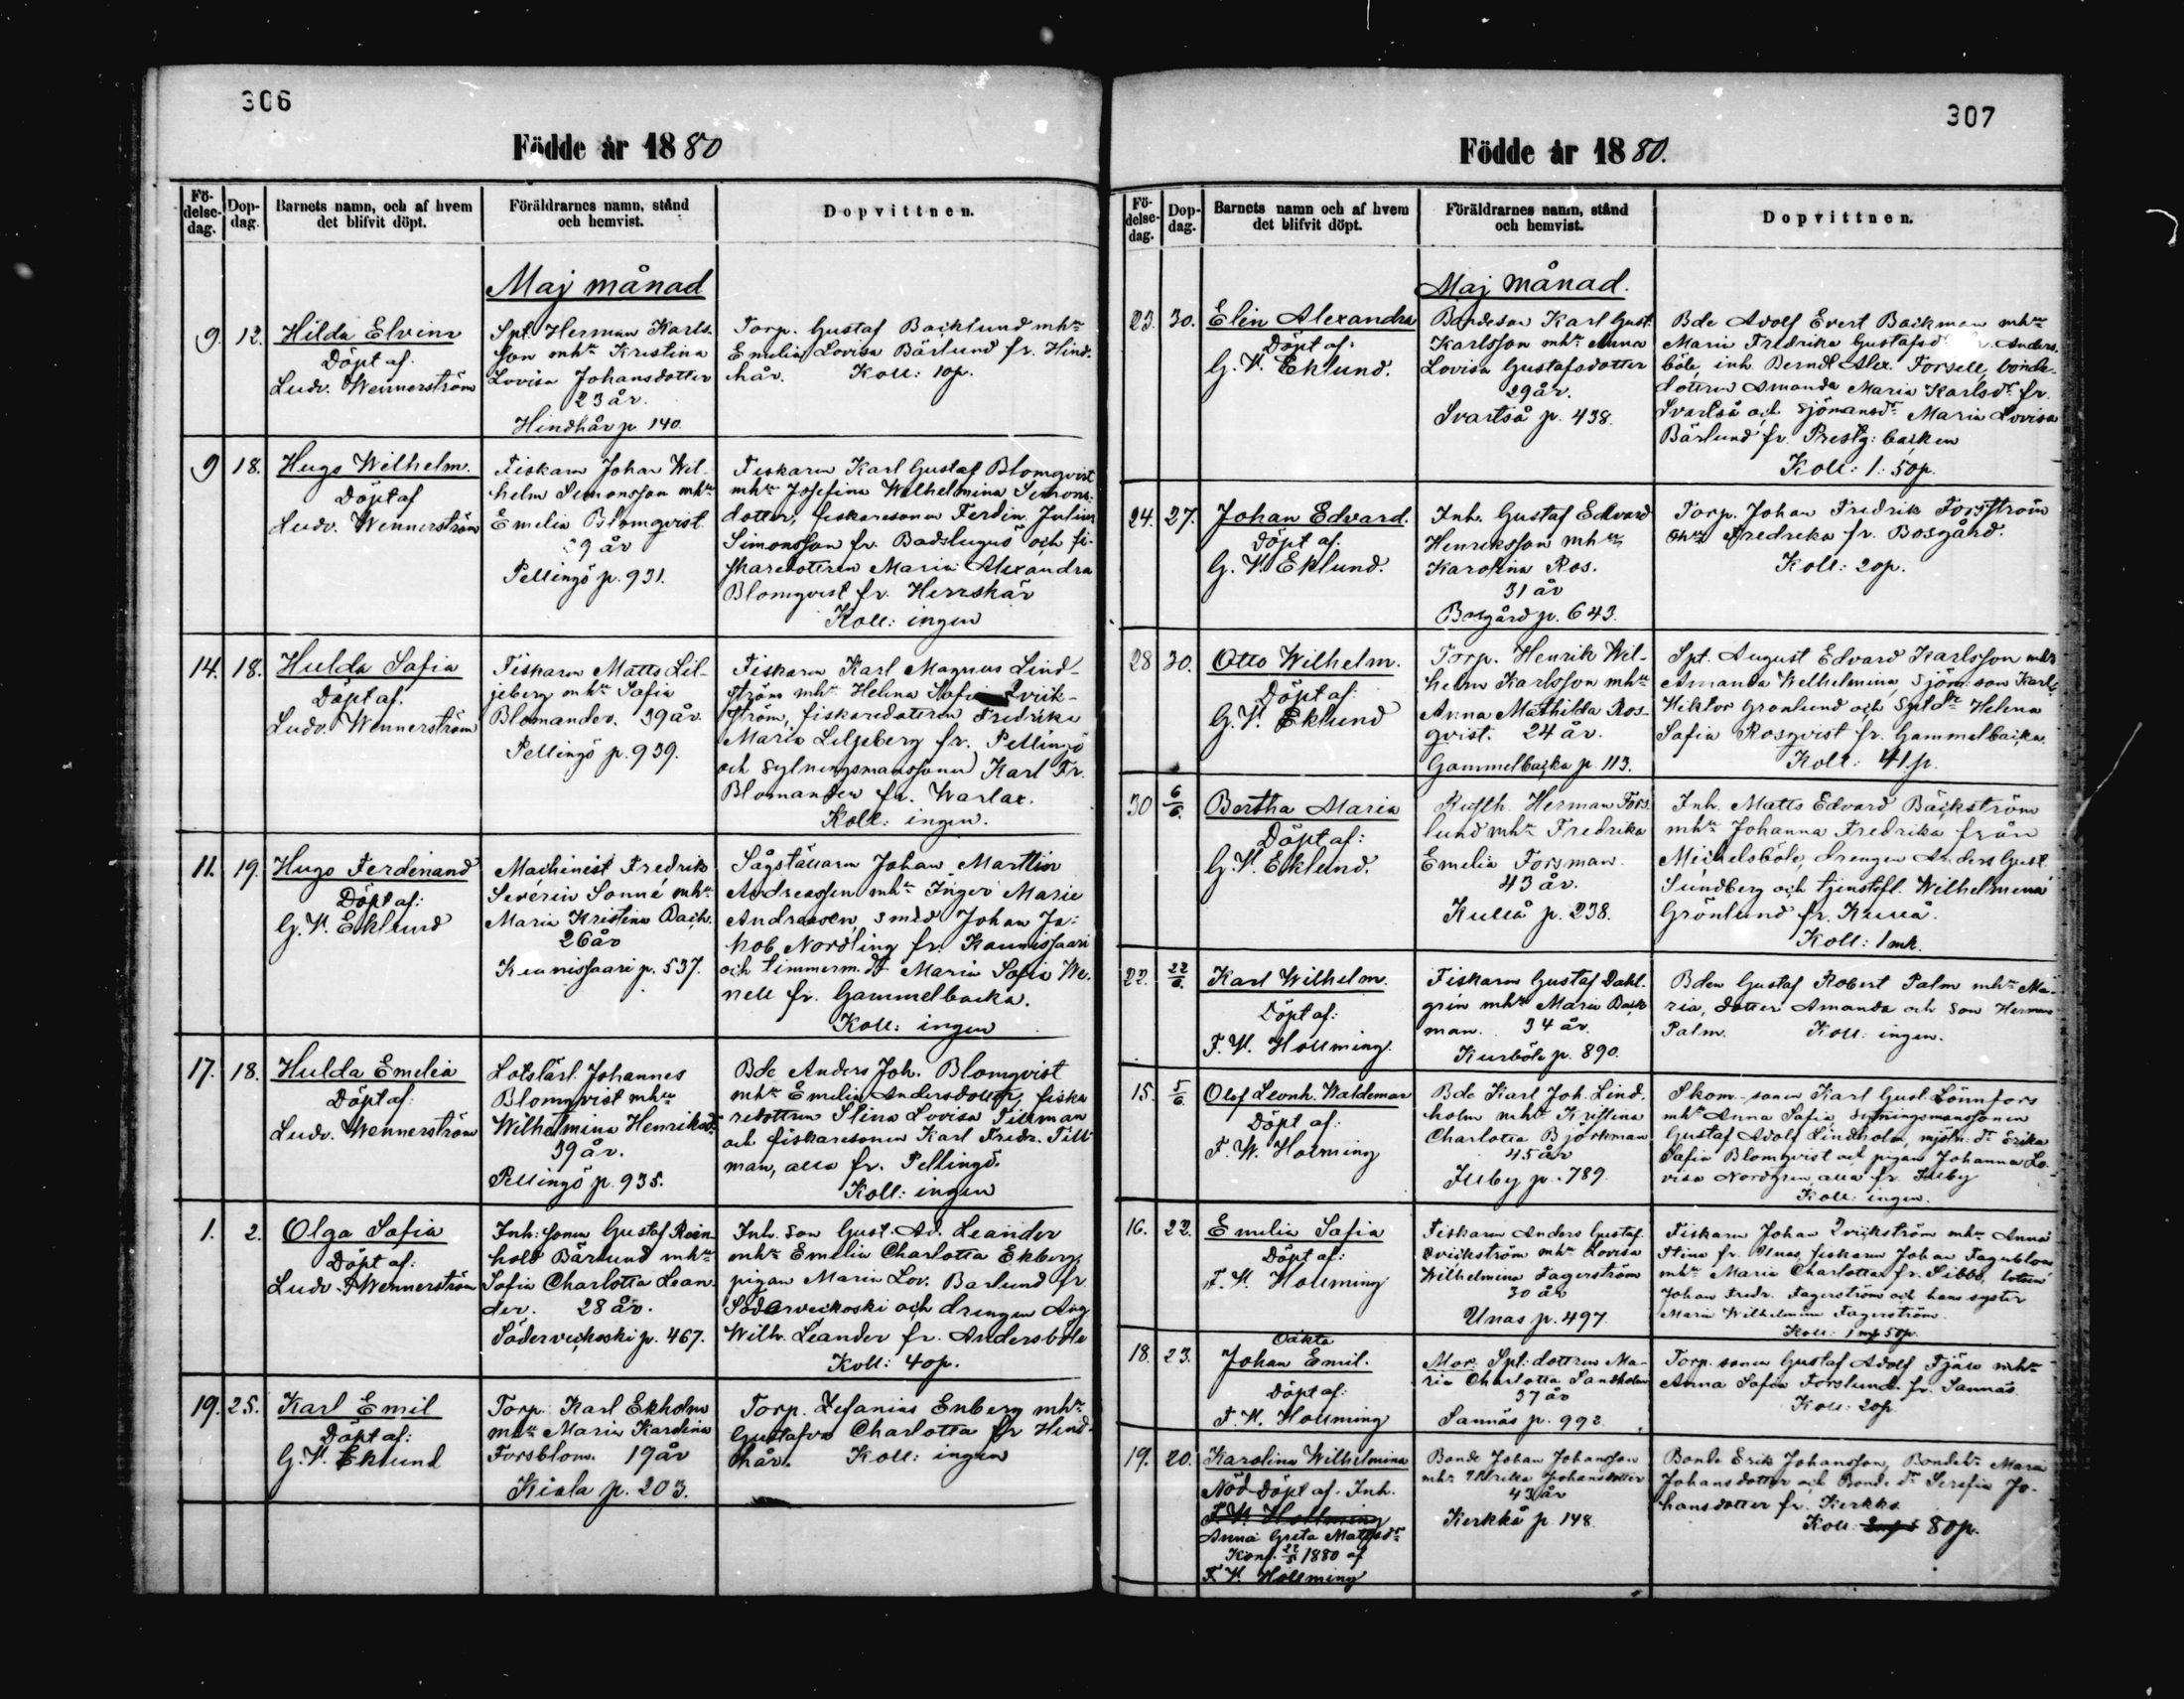 306
Födde år 1880
Fö-
delse-
dag.
Dop-
dag.
Barnets namn, och af hvem
det blifvit döpt.
Föräldrarnes namn, stånd
och hemvist.
Dopvittnen.
Maj månad
9. 12.
Hilda Elvina
Döpt af
Ludv. Wennerström
Spt. Herman Karls-
son mhu Kristina
Lovisa Johansdotter
23 år.
Hindhår p. 140.
Torp. Gustaf Backlund mhu
Emelia Lovisa Bärlund fr. Hind-
hår. Koll: 10p.
9 18.
Hugo Wilhelm.
Döpt af
Ludv. Wennerström
Fiskaren Johan Wil-
helm Simonsson mhu
Emelia Blomqvist.
9 år
Pellingö p. 931.
Fiskaren Karl Gustaf Blomqvist
mhu Josefina Wilhelmina Simons-
dotter, fiskaresonen Ferdin. Julius
Simonsson fr. och fi-
skaredottren Maria Alexandra
Blomqvist fr. Herrskär
Koll: ingen
14. 18.
Hulda Sofia
Döpt af.
Ludv. Wennerström
Fiskaren Matts Lil-
jeberg mhu Sofia
Blomander. 39 år.
Pellingö p. 939.
Fiskaren Karl Magnus Lind-
ström mhu Helena Sofia Qvick-
ström, fiskaredottren Fredrika
Maria Liljeberg fr. Pellingö
och Karl Fr.
Blomander fr. Warlax.
Koll: ingen.
11. 19.
Hugo Ferdinand
Döpt af:
G. V. Eklund
Machinist Fredrik
Severin Sonné mhu
Maria Kristina Bach.
26 år
Kaunissaari p. 537.
Sågställaren Johan Marttin
Andreassen mhu Inger Marie
Andreasen, smed Johan Ja-
kob Nordling fr. Kaunissaari
och timmerm. dr Maria Sofia We-
nell fr. Gammelbacka.
Koll: ingen
17. 18.
Hulda Emelia
Döpt af
Ludv. Wennerström
Lotslärl. Johannes
Blomqvist mhu
Wilhelmina Henriksdr
39 år.
Pellingö p. 935.
Bde Anders Joh. Blomqvist
mhu Emelia Andersdotter, fiska-
redottren Stina Lovisa Tillman
och fiskaresonen Karl Fredr. Till-
man, alla fr. Pellingö.
Koll: ingen
1. 2.
Olga Sofia
Döpt af:
Ludv. Wennerström
Inh. sonen Gustaf Rein-
hold Bärlund mhu
Sofia Charlotta Lean-
der. 28 år.
Söderveckoski p. 467.
Inh. son Gust. Ad. Leander
mhu Emelia Charlotta Ekberg,
pigan Maria Lov. Bärlund fr.
Söderveckoski och drengen Aug.
Wilh. Leander fr. Andersböle
Koll: 40p.
19. 25.
Karl Emil
Döpt af:
G. V. Eklund
Torp. Karl Ekholm
mhu Maria Karolina
Forsblom. 19 år
Kiala p. 203.
Torp. Zefanias Enberg mhu
Gustafva Charlotta fr Hind-
hår. Koll: ingen
307
Födde år 1880.
Fö-
delse-
dag.
Dop-
dag.
Barnets namn och af hvem
det blifvit döpt.
Föräldrarnes namn, stånd
och hemvist.
Dopvittnen.
Maj månad.
23. 30.
Elin Alexandra
Döpt af:
G. V. Eklund.
Bondeson Karl Gust.
Karlsson mhu Anna
Lovisa Gustafsdotter
29 år.
Svartså p. 438.
Bde Adolf Evert Backman mhu
Maria Fredrika Gustafsd Anders-
böle, inh. Berndt Alex. Forsell, bonde-
dottren Amanda Maria Karlsdr fr.
Svartså och Sjömansdr Maria Lovisa
Bärlund fr. Prestg: backen
Koll: 1: 50p.
24. 27.
Johan Edvard.
Döpt af.
G. V. Eklund.
Inh. Gustaf Edvard
Henriksson mhu
Karolina Ros.
31 år
Bosgård p. 643.
Torp. Johan Fredrik Forsström
mhu Fredrika fr. Bosgård.
Koll: 20p.
28 30.
Otto Wilhelm.
Döpt af:
G. V. Eklund
Torp. Henrik Wil-
helm Karlsson mhu
Anna Mathilda Ros-
qvist. 24 år.
Gammelbacka p. 113.
Spt. August Edvard Karlsson mhu
Amanda Wilhelmina, Sjöm: son Karl
Viktor Grönlund och Sptdr Helena
Sofia Rosqvist fr. Gammelbacka.
Koll: 41p.
30 6/6.
Bertha Maria
Döpt af:
G. V. Eklund.
Herman Fors-
lund mhu Fredrika
Emelia Forsman.
43 år.
Kullå p. 238.
Inh. Matts Edvard Bäckström
mhu Johanna Fredrika från
Mickelsböle, drengen Anders Gust.
Sundberg och tjenstfl. Wilhelmina
Grönlund fr. Kullå.
Koll: 1 mk.
22. 22/6.
Karl Wilhelm.
Döpt af:
F. V. Hollming.
Fiskaren Gustaf Dahl-
grén mhu Maria Back-
man. 34 år.
Kurböle p. 890.
Bden Gustaf Robert Palm mhu Ma-
ria, dotter Amanda och son Herman
Palm. Koll: ingen.
15. 5/6.
Olof Leonh. Waldemar
Döpt af:
F. W. Holming
Bde Karl Joh. Lind-
holm mhu Kristina
Charlotta Björkman
45 år
Illby p. 789.
Skom.-sonen Karl Gust. Lönnfors
mhu Anna Sofia,
Gustaf Adolf Lindholm, mjöln: dr Erika
Sofia Blomqvist och pigan Johanna Lo-
visa Nordgren, alla fr. Illby
Koll: ingen.
16. 22.
Emilia Sofia
Döpt af:
F. V. Hollming
Fiskaren Anders Gustaf
Qvickström mhu Lovisa
Wilhelmina Fagerström
30 år
Unas p. 497.
Fiskaren Johan Qvickström mhu Anna
Stina fr. Unas, fiskaren Johan Fagerblom
mhu Maria Charlotta fr. Sibbo, lotsen
Johan Fredr. Fagerström och hans syster
Maria Wilhelmina Fagerström.
Koll: 1 mk 50p.
18. 23.
Oäkta
Johan Emil.
Döpt af:
F. V. Hollming
Mor: Spt: dottren Ma-
ria Charlotta Sandholm
37 år
Sannäs p. 992.
Torp. sonen Gustaf Adolf Tjäru mhu
Anna Sofia Forslund. fr. Sannäs.
Koll: 20p.
19. 20.
Karolina Wilhelmina
Nöd Döpt af. Inh.
F. V. Hollming
Anna Greta Mattsdr
Konf. 22/5 1880 af
F. V. Hollming
Bonde Johan Johansson
mhu Ulrika Johansdotter
43 år
Kerkkå p 148.
Bonde Erik Johansson, Bondedr Maria
Johansdotter och Bonde dr Serafia Jo-
hansdotter fr. Kerkko.
Koll: 80p.